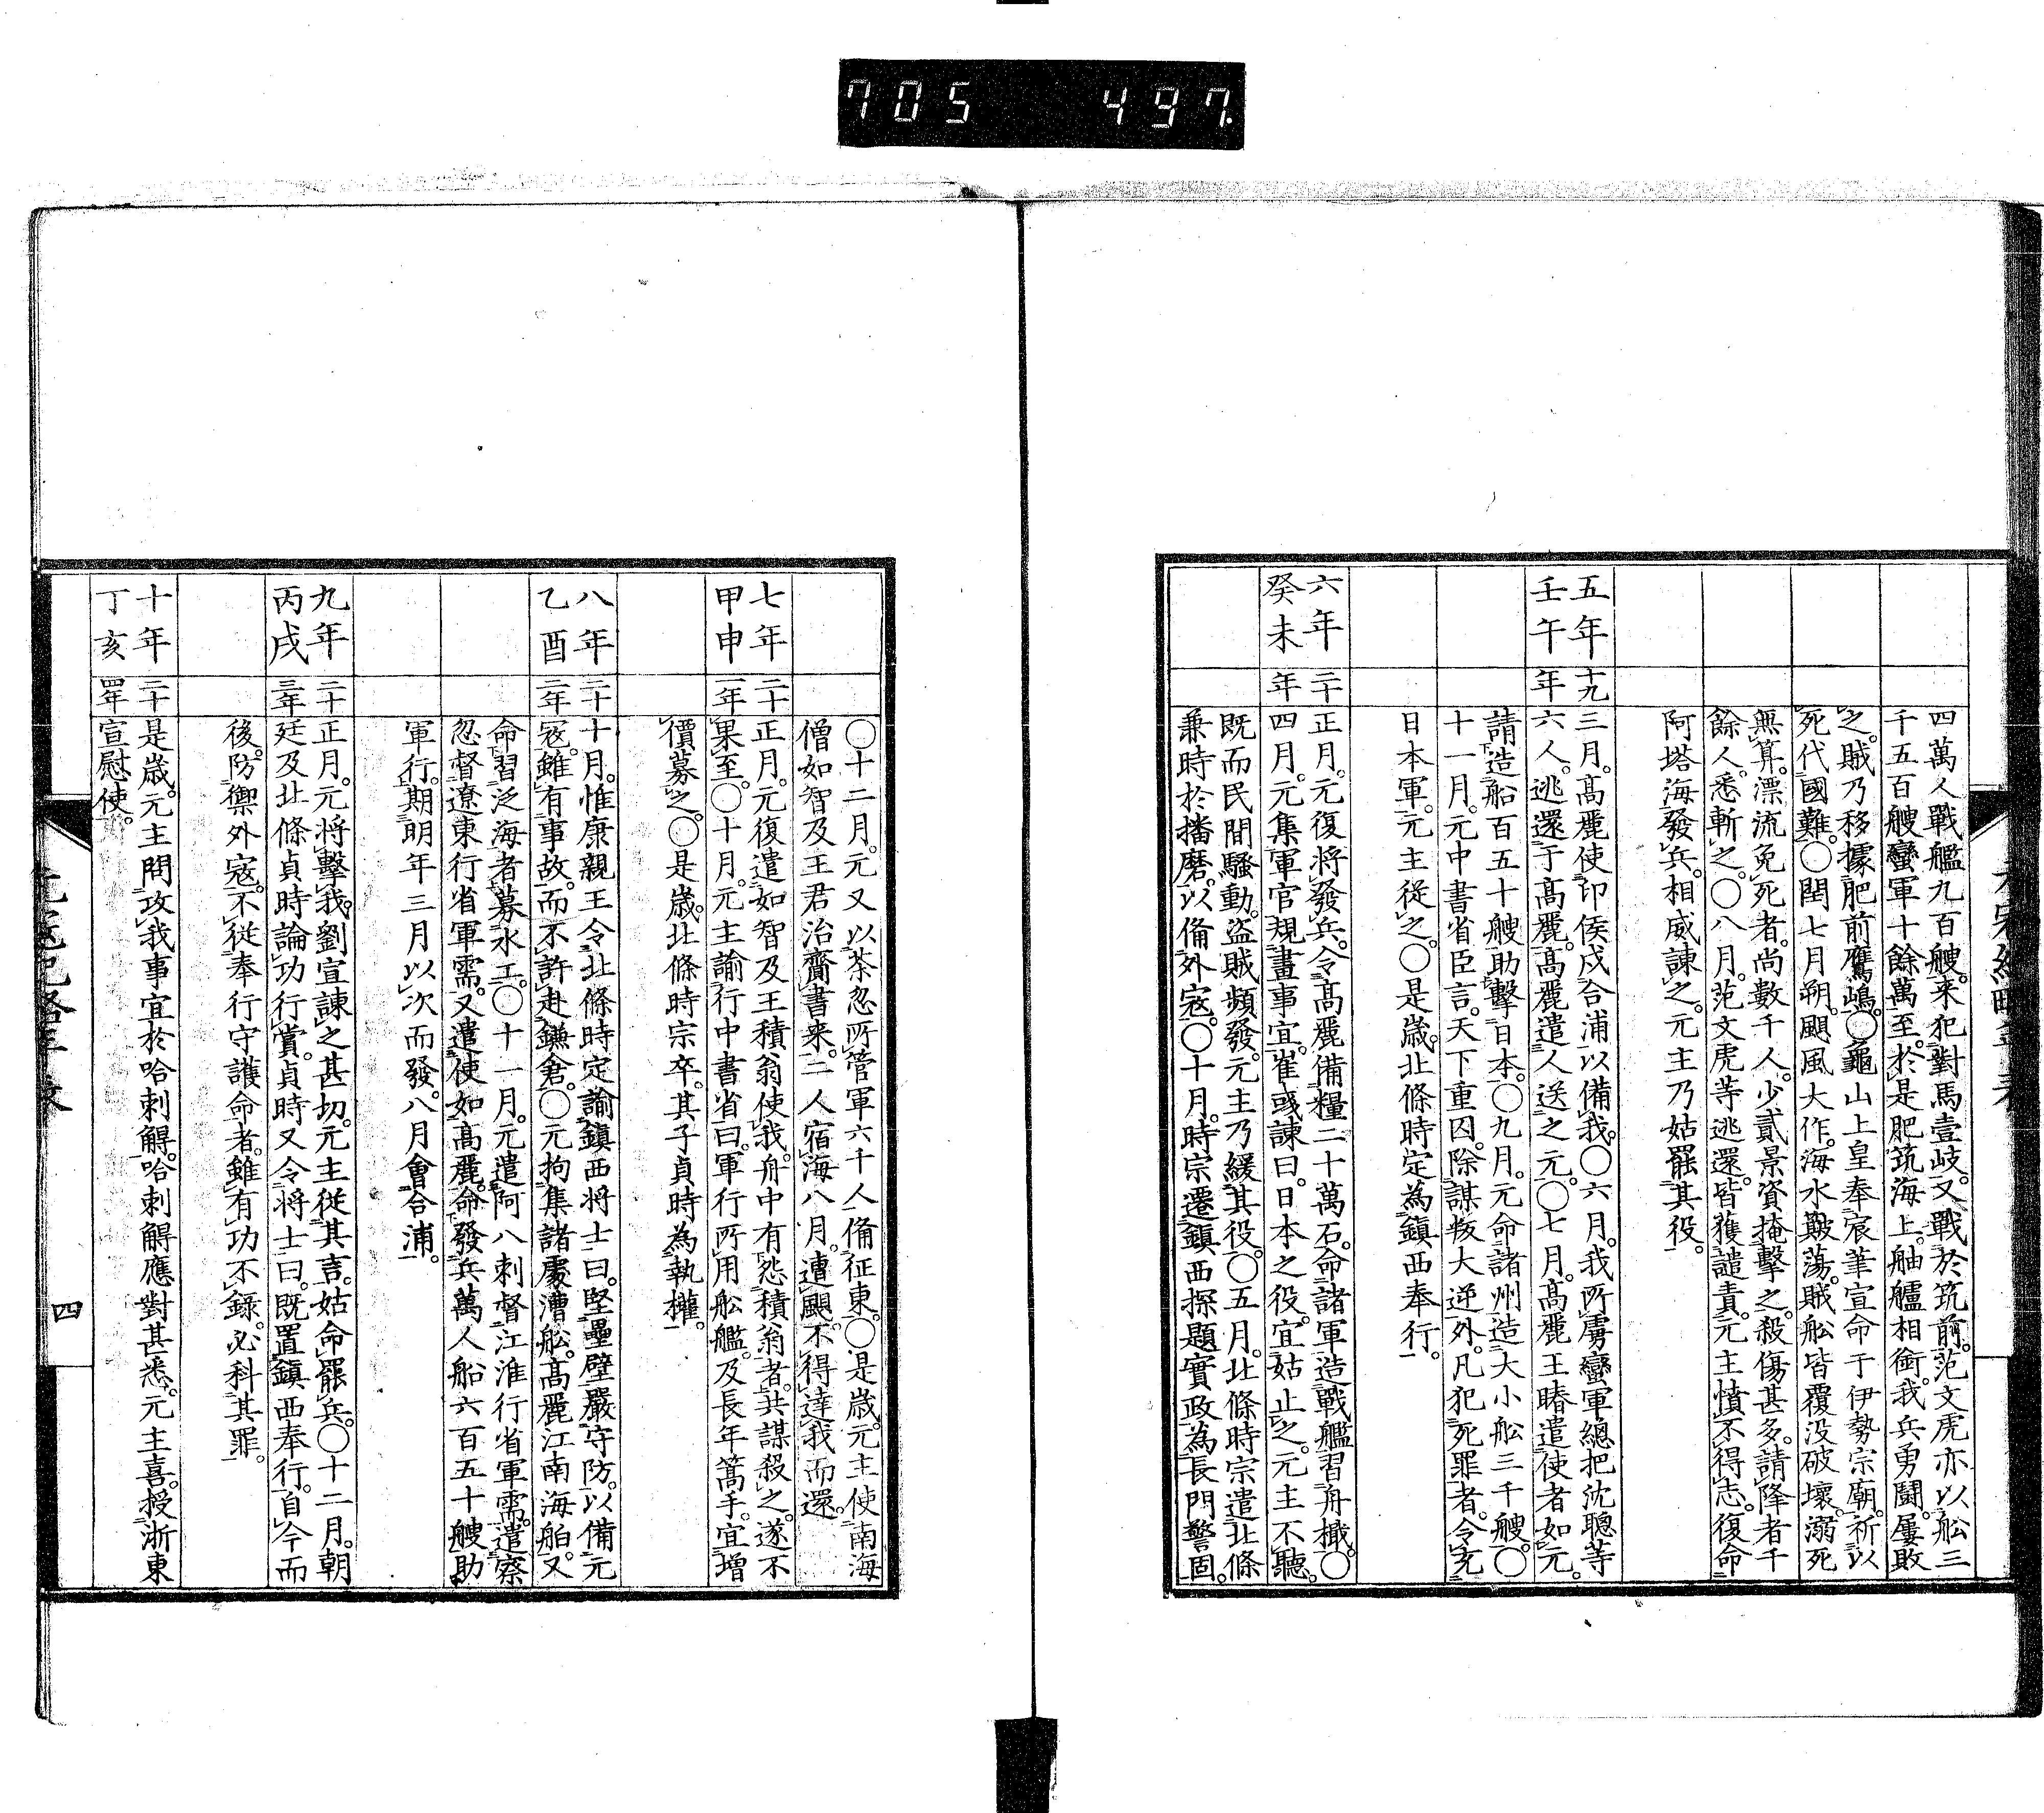 705 497.
四萬人戰艦九百艘。来犯對馬壹岐。又戰於筑前。范文虎亦以舩三
千五百艘蠻軍十餘萬至。於是肥筑海上。舳艫相銜。我兵勇鬪。屢敗
之。賊乃移據肥前鷹嶋。○龜山上皇奉宸筆宣命于伊勢宗廟。祈以
死代國難。○閏七月朔。颶風大作。海水簸蕩。賊舩皆覆没破壞。溺死
無算。漂流免死者。尚數千人。少貳景資掩擊之。殺傷甚多。請降者千
餘人。悉斬之。○八月。范文虎等逃還。皆獲譴責。元主憤不得志。復命
阿塔海發兵。相威諫之。元主乃姑罷其役。
五年 十九 三月。高麗使印侯戍合浦以備我。○六月。我所虜蠻軍總把沈聰等
壬午 年 六人。逃還于高麗。高麗遣人送之元。○七月。高麗王賰遣使者如元。
請造船百五十艘助擊日本。○九月。元命諸州造大小舩三千艘。○
十一月。元中書省臣言。天下重囚。除謀叛大逆外。凡犯死罪者。令充
日本軍。元主從之。○是歲。北條時定為鎮西奉行。
六年 二十 正月。元復将發兵。令高麗備糧二十萬石。命諸軍造戰艦習舟檝。○
癸未 年 四月。元集軍官規畫事宜。崔彧諫曰。日本之役。宜姑止之。元主不聽。
既而民間騷動。盜賊頻發。元主乃緩其役。○五月。北條時宗遣北條
兼時於播磨。以備外寇。○十月。時宗遷鎮西探題實政為長門警固。
○十二月。元又以茶忽所管軍六千人備征東。○是歲。元主使南海
僧如智及王君治齎書来。二人宿海八月。遭颶。不得達我而還。
七年 二十 正月。元復遣如智及王積翁使我。舟中有怨積翁者。共謀殺之。遂不
甲申 一年 果至。○十月。元主諭行中書省曰。軍行所用舩艦。及長年篙手。宜增
價募之。○是歲。北條時宗卒。其子貞時為執權。
八年 二十 十月。惟康親王令北條時定諭鎮西将士曰。堅壘壁嚴守防。以備元
乙酉 二年 寇。雖有事故。而不許赴鎌倉。○元拘集諸處漕舩。高麗江南海舶。又
命習泛海者。募水工。○十一月。元遣阿八剌督江淮行省軍需。遣察
忽督遼東行省軍需。又遣使如高麗。命發兵萬人船六百五十艘助
軍行。期明年三月以次而發。八月會合浦。
九年 二十 正月。元将擊我。劉宣諫之甚切。元主從其言。姑命罷兵。○十二月。朝
丙戌 三年 廷及北條貞時論功行賞。貞時又令将士曰。既置鎮西奉行。自今而
後。防禦外寇。不從奉行守護命者。雖有功不録。必科其罪。
十年 二十 是歲。元主問攻我事宜於哈剌䚟。哈剌䚟應對甚悉。元主喜。授浙東
丁亥 四年 宣慰使。
四